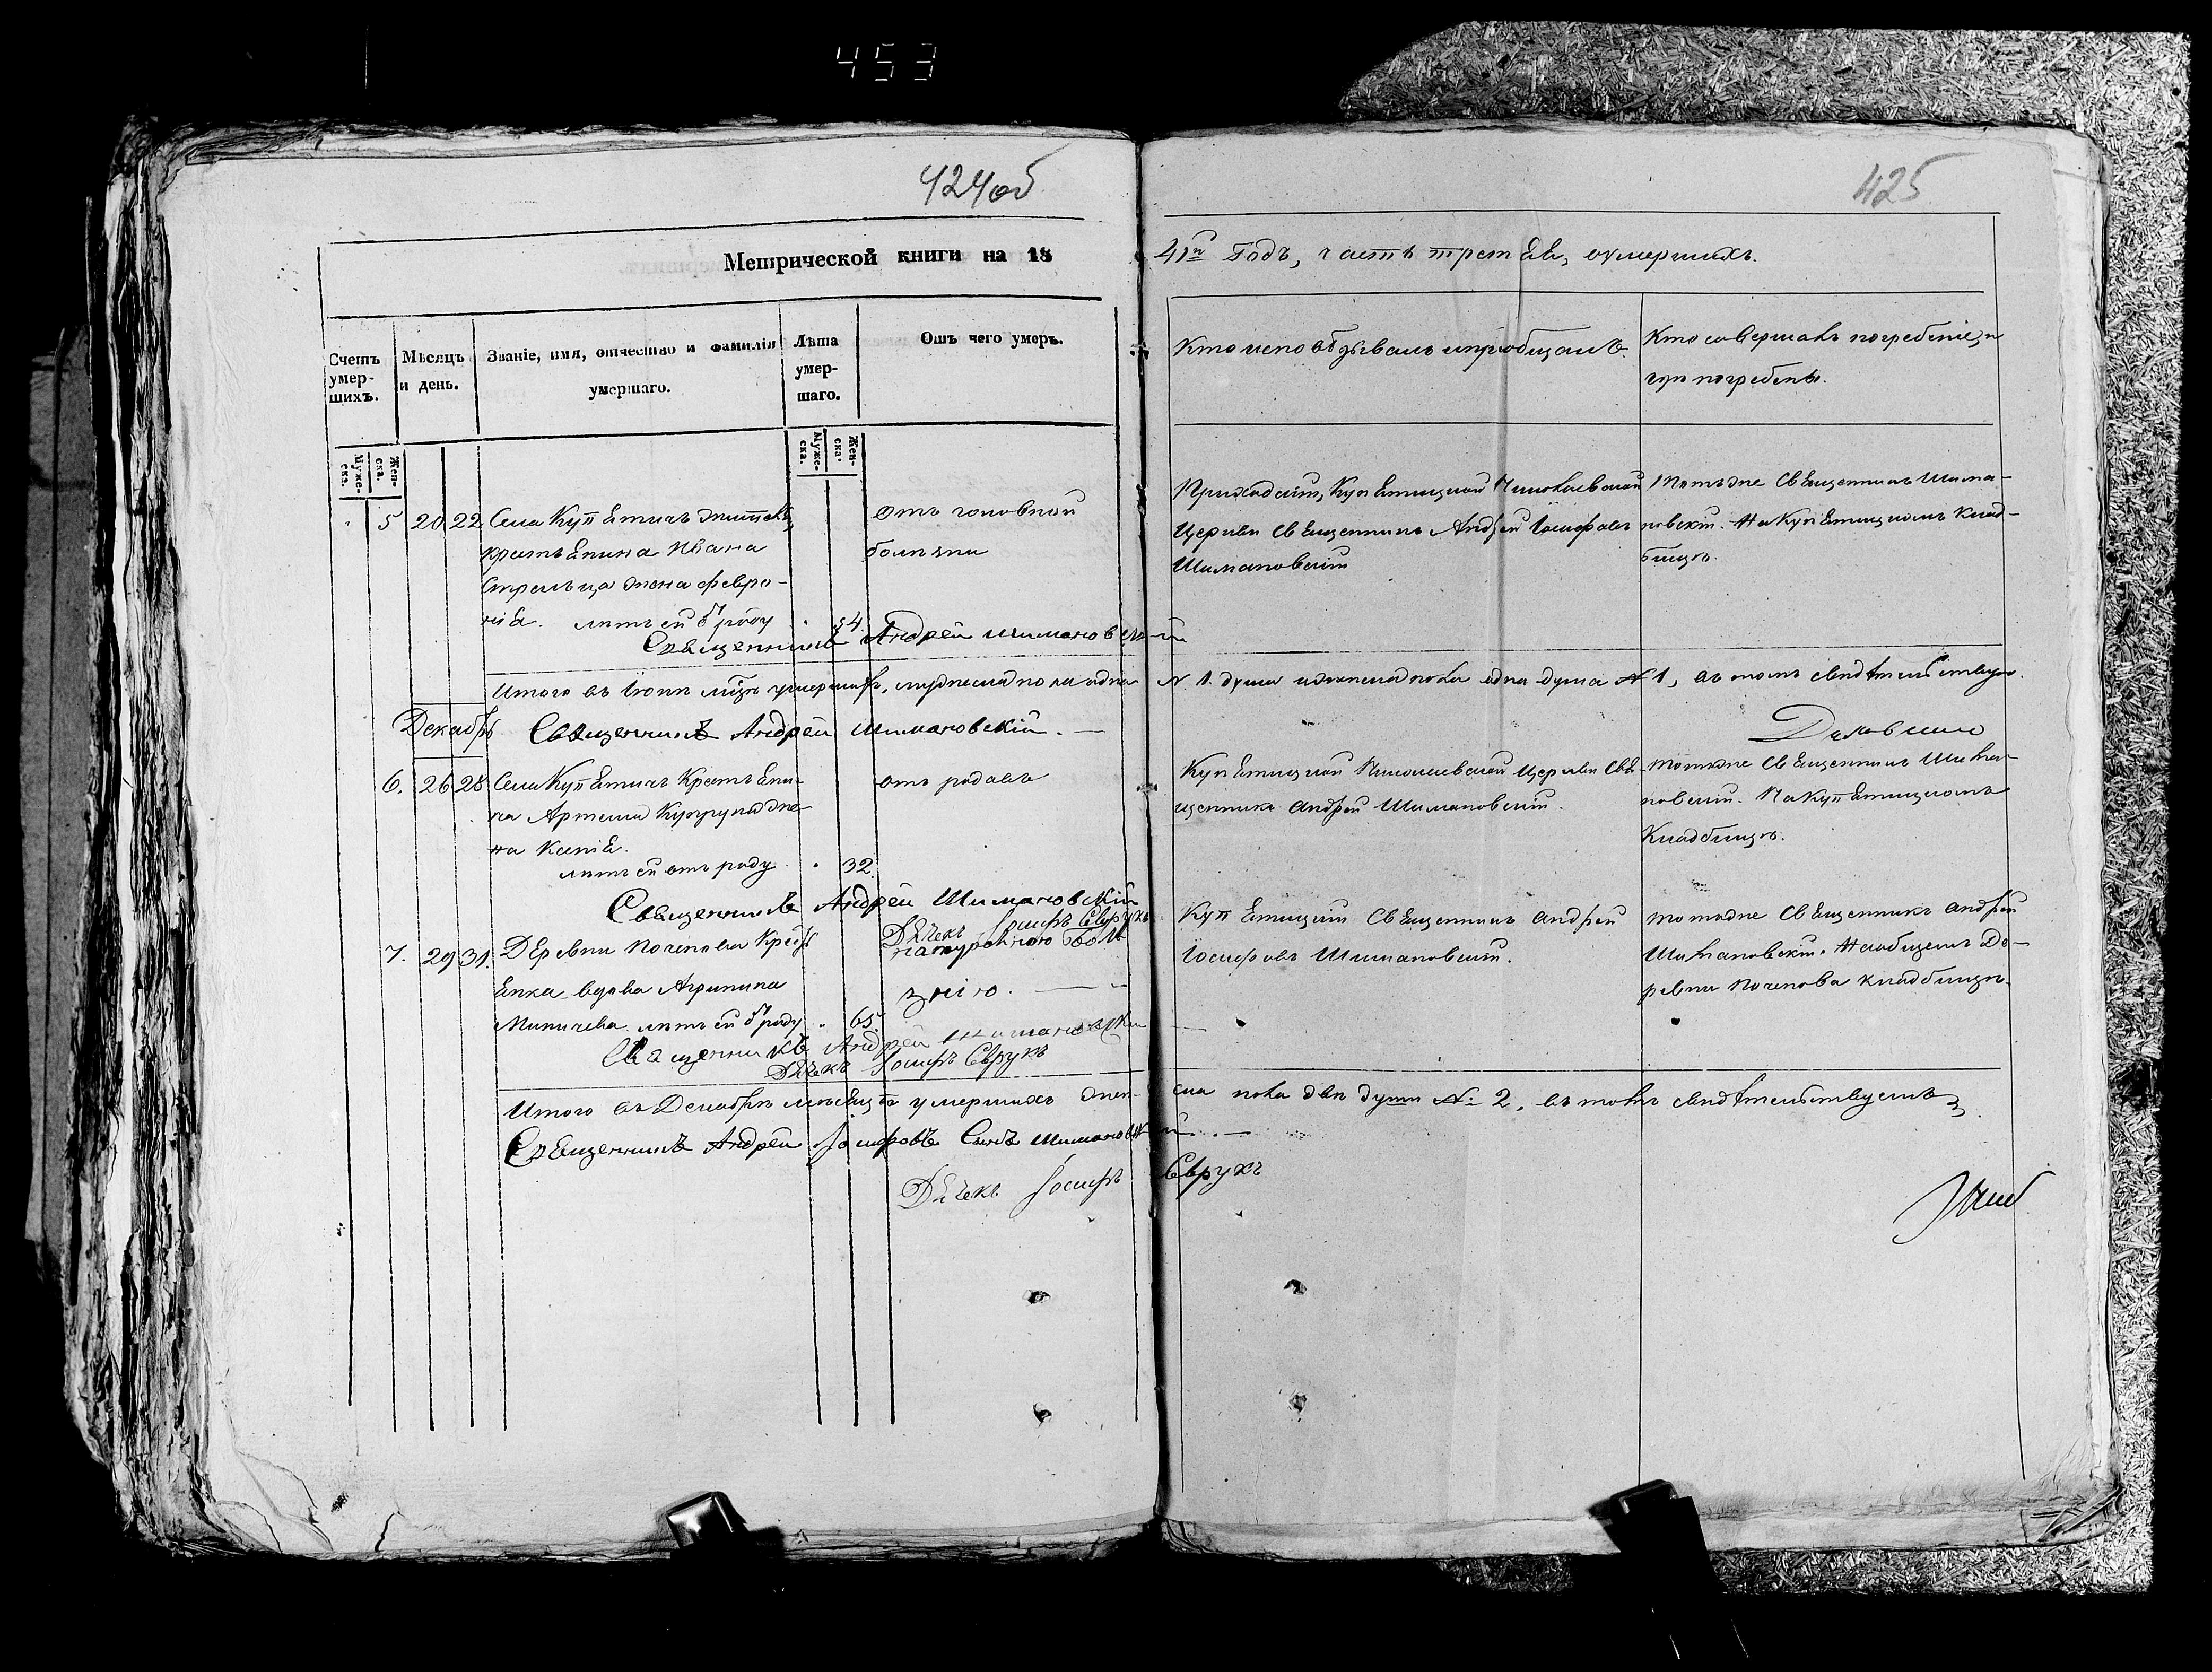 453
424об
425
Метрической книги на 18
41й Годъ, часть третья, о умершихъ.
Счетъ умер-шихъ.
Мѣсяцъ и день.
Званіе, имя, отчество и фамилія умершаго.
Лѣта умер-шаго.
Отъ чего умеръ.
Кто исповѣдывалъ и пріобщалъ.
Кто совершалъ погребеніе, и
гдѣ погребены.
Муже-ска.
Жен-ска.
Муже-ска.
Жен-ска.
5 20 22 Села Купятичъ жителя
крестьянина Ивана
Стрельца жена Февро-
нія. лѣтъ ей ѿ роду 54.
отъ головной
болѣзни
Приходскій, Купятицкой Николаевской
Церкви Священникъ Андрей Іосифовъ
Шимановскій
Тотъ же Священникъ Шима-
новскій. На Купятицкомъ клад-
бищѣ.
Священникъ Андрей Шимановскій
Итого въ Іюнѣ мѣсяцѣ умершихъ, мужеска пола одна
№ 1. душа и женска пола одна душа № 1, въ томъ свидѣтельствую.
Декабрь
Священникъ Андрей Шимановскій.
6. 26 28 Села Купятичъ Крестьяни-
на Артема Кукурузы же-
на Ксенія.
лѣтъ ей отъ роду 32.
отъ родовъ
Купятицкой Николаевской Церкви Свя-
щенникъ Андрей Шимановскій.
тотъ же Священникъ Шима-
новскій. На Купятицкомъ
Кладбищѣ.
Священникъ Андрей Шимановскій
Дьячекъ Іосифъ Сврухъ
7. 29 31. Деревни Почепова Крестья
янка вдова Агрипина
Миничева лѣтъ ей ѿ роду 65.
натуральною болѣ
знію.
Купятицкій Священникъ Андрей
Іосифовъ Шимановскій.
тотъ же Священникъ Андрей
Шимановскій. На общемъ Де-
ревни Почепова кладбищѣ.
Священникъ Андрей Шимановскій
Дьячекъ Іосифъ Сврухъ
Итого въ Декабрѣ мѣсяцѣ умершихъ жен-
ска пола двѣ души № 2, въ томъ свидѣтельствуемъ
Священникъ Андрей Іосифовъ Сынъ Шимановскій.
Дьячекъ Іосифъ Сврухъ